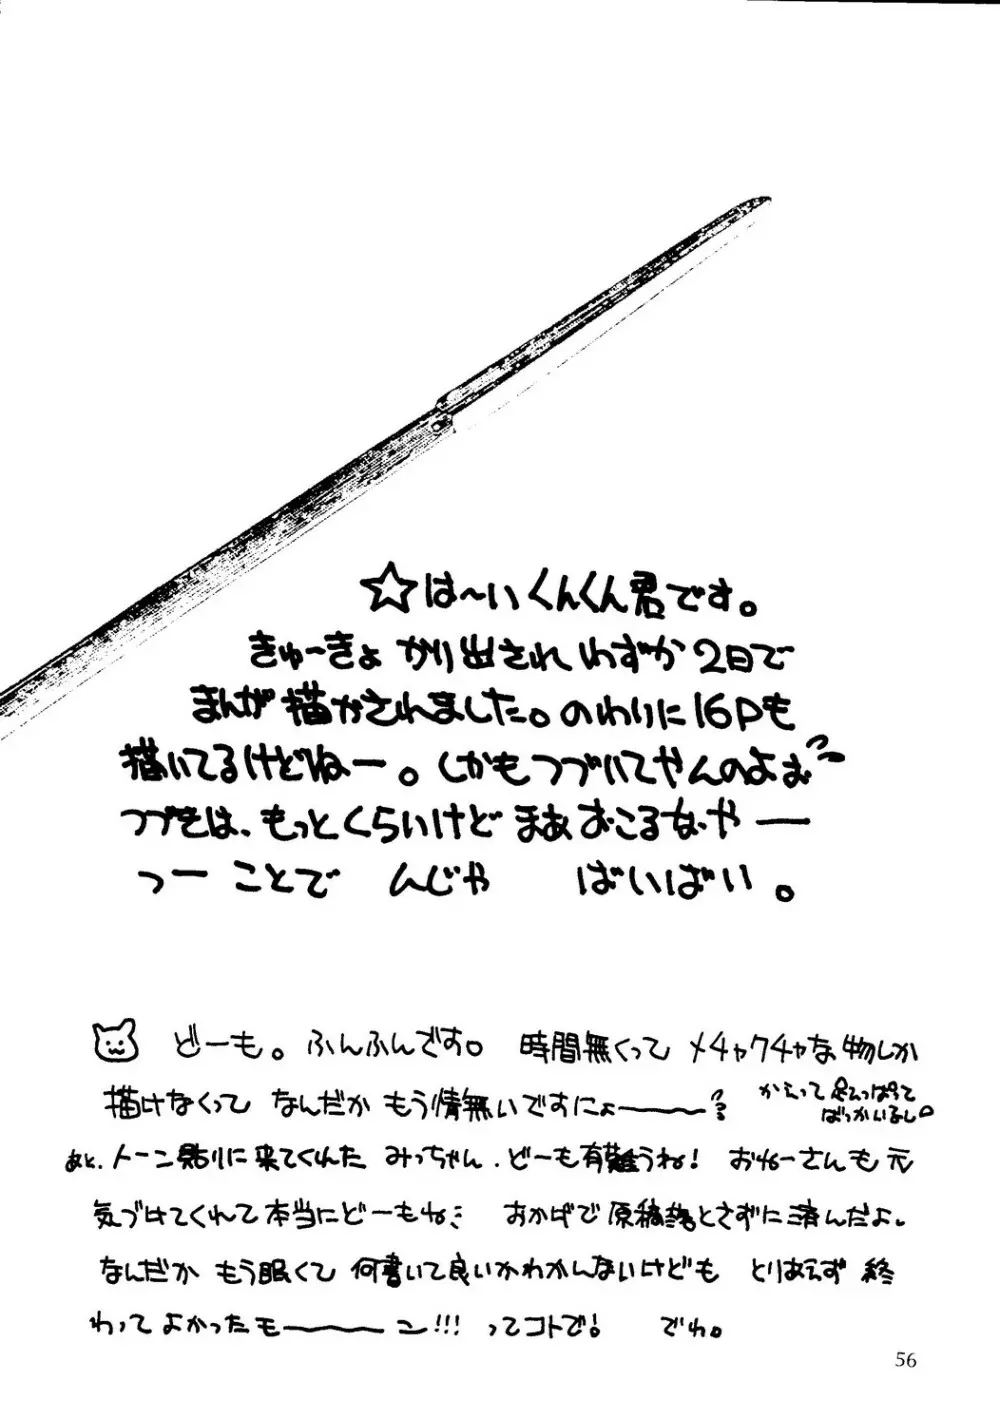 ☆は〜いくんくん君です。
きゅーきょ かり出されわずか2日で
まんが描かされました。のわりに16Pも
描いてるけどねー。しかもつづいてやんのよお
つづきは、もっとくらいけど まあおこるなやー
つーことで んじゃ ばいばい。
どーも。ふんふんです。 時間無くって メチャクチャな物しか
描けなくって なんだか もう情無いですにょ〜〜〜
かえって足ひっぱって
ばっかいるし。
あと、トーン貼りに来てくれた みっちゃん、どーも有難うね! おねーさんも元
気づけてくれて本当にどーもね おかげで原稿落とさずに済んだよ。
なんだか もう眠くて 何書いて良いかわかんないけども とりあえず 終
わってよかったモ〜〜〜ン!!! ってコトで! でわ。
56